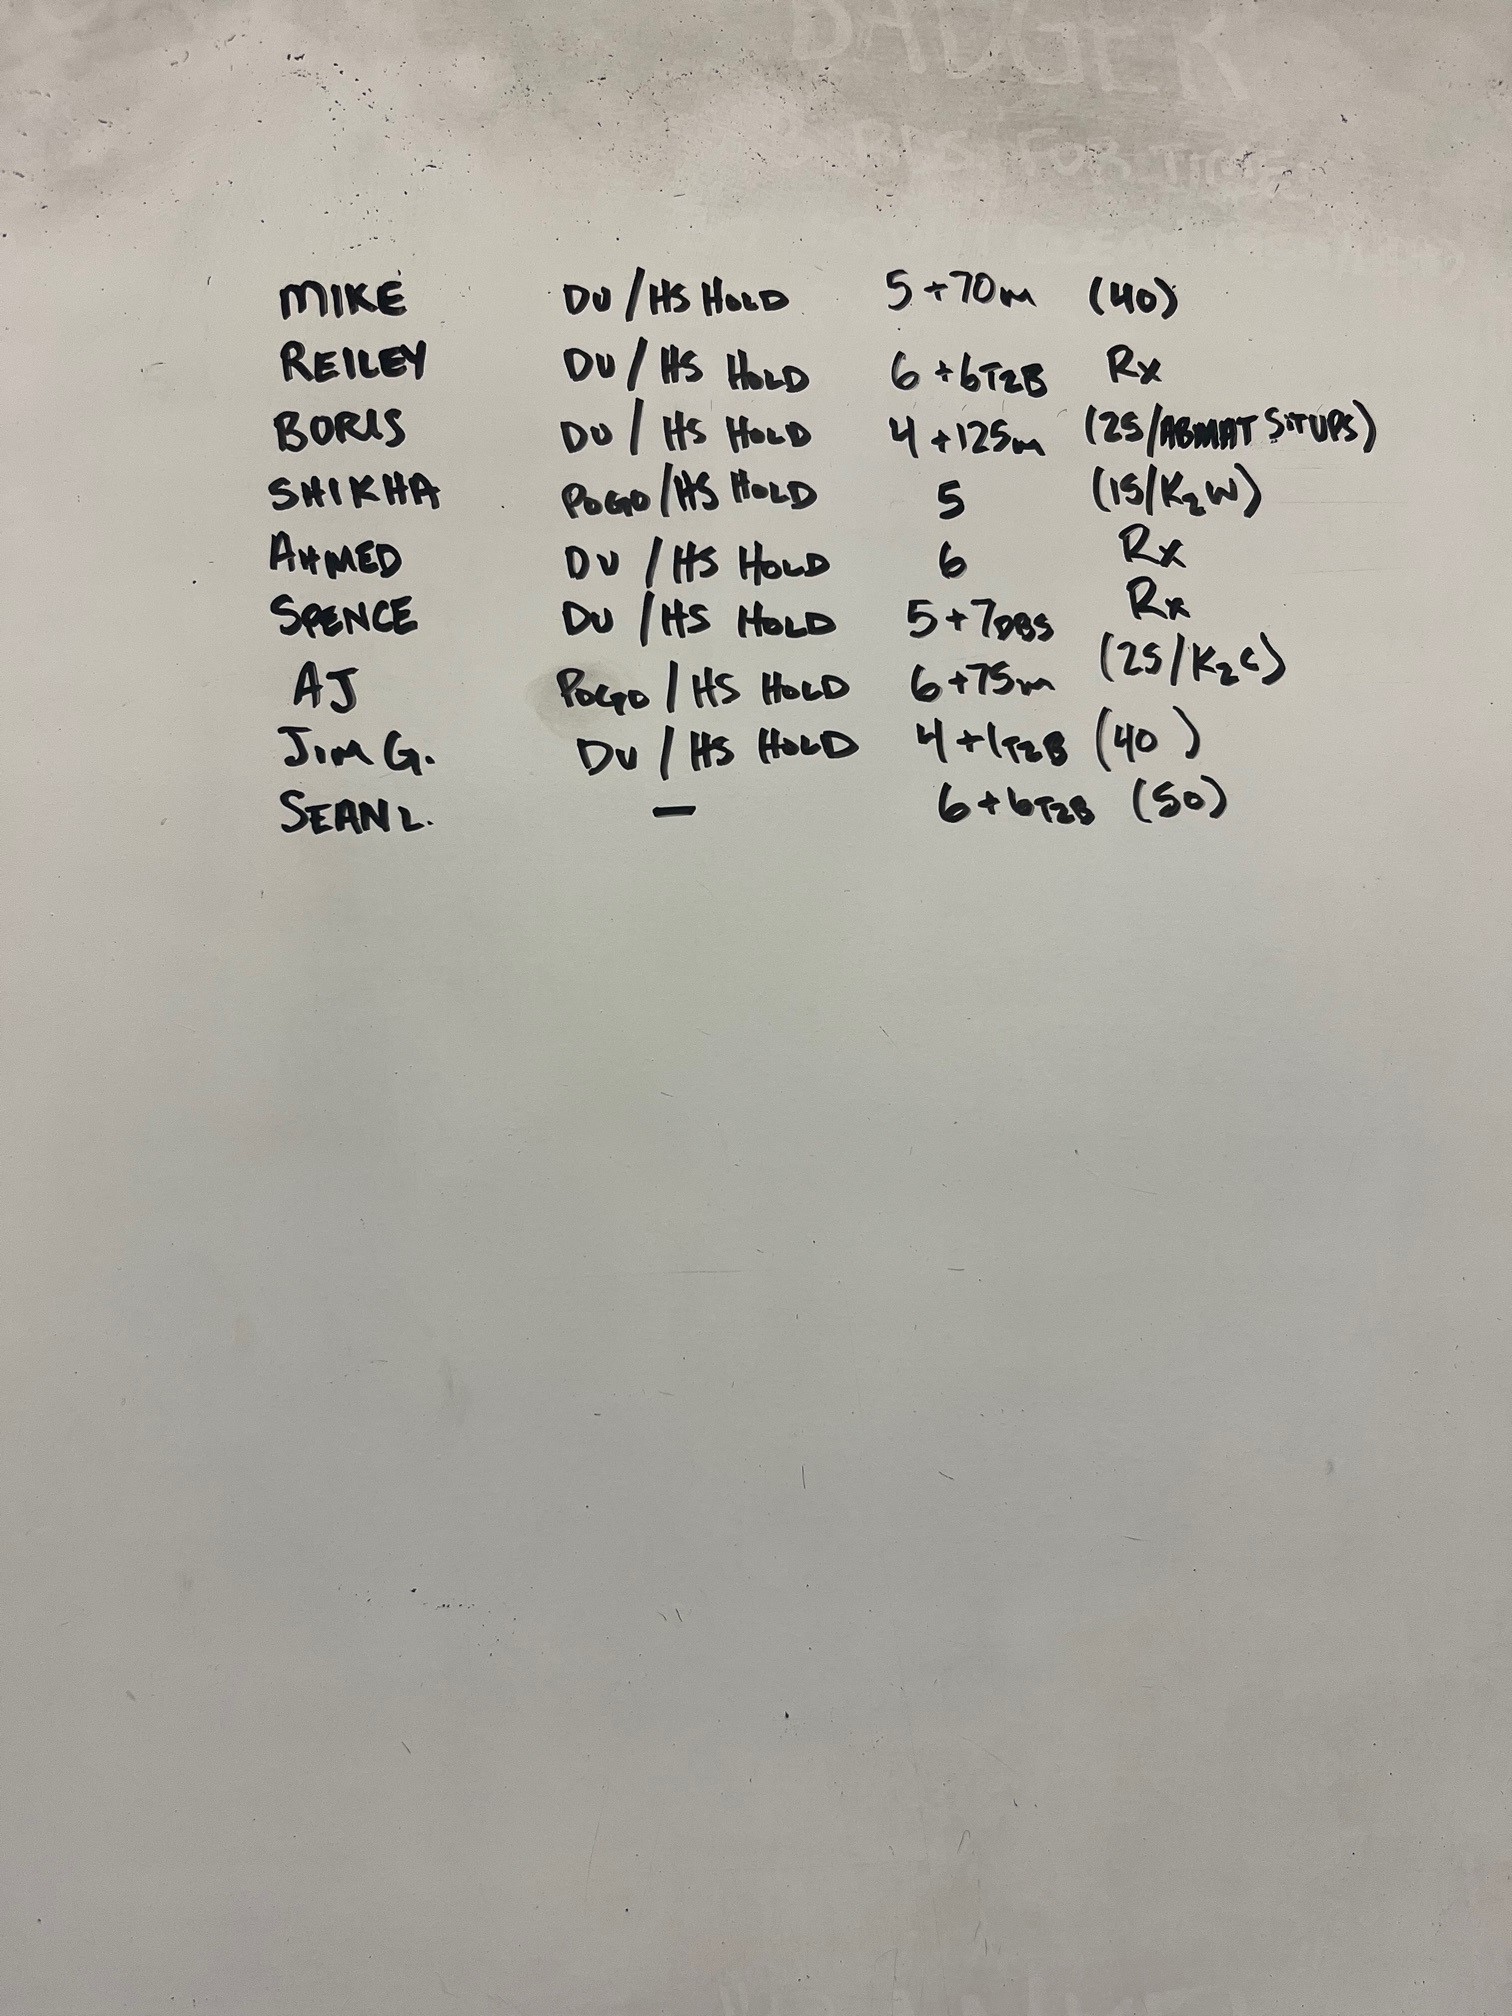 BADGER
FOR TIME:
MIKE DU/HS HOLD 5+70m (40)
REILEY DU/HS HOLD 6+6T2B Rx
BORIS DU/HS HOLD 4+125m (25/ABMAT SITUPS)
SHIKHA POGO/HS HOLD 5 (15/K2W)
AHMED DU/HS HOLD 6 Rx
SPENCE DU/HS HOLD 5+7DBS Rx
AJ POGO/HS HOLD 6+75m (25/K2C)
JIM G. DU/HS HOLD 4+1T2B (40)
SEAN L. – 6+6T2B (50)